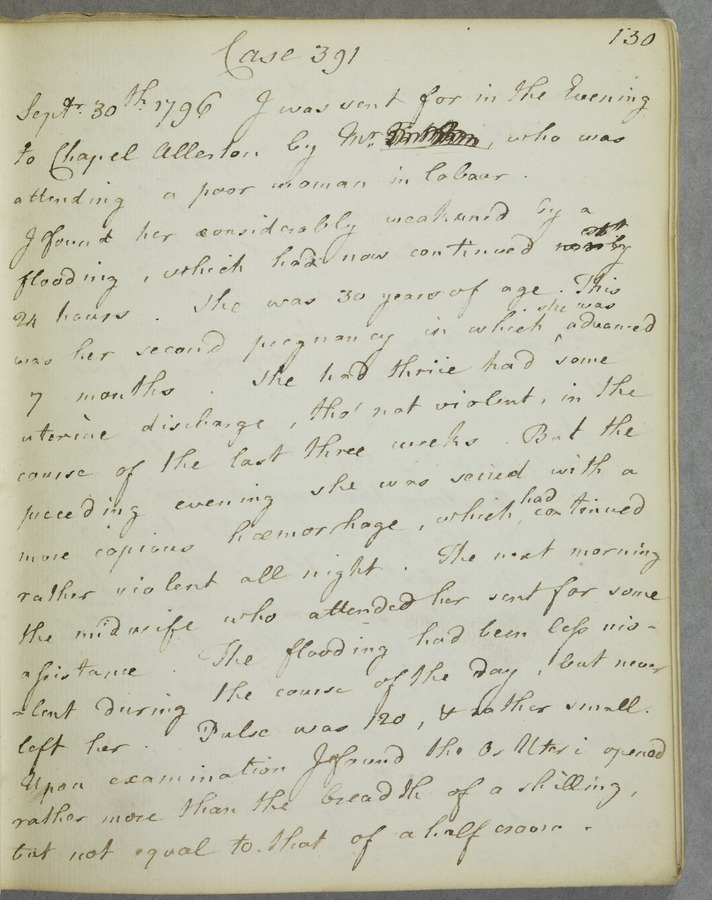 130
Case 391
Septr. 30th 1796 I was sent for in the Evening
to Chapel Allerton by Mr. , who was
attending a poor woman in labour.
I found her considerably weakened by a
flooding, which had now continued
24 hours. She was 30 years of age. This
was her second pregnancy in which she was advanced
7 months. She had thrice had some
uterine discharge, tho' not violent, in the
course of the last three weeks. But the
preceding evening she was seized with a
more copious hæmorrhage, which had continued
rather violent all night. The next morning
the midwife who attended her sent for some
assistance. The flooding had been less vio-
-lent during the course of the day, but never
left her. Pulse was 120, & rather small.
Upon examination I found the Os Uteri opened
rather more than the breadth of a shilling,
but not equal to that of a half crown.